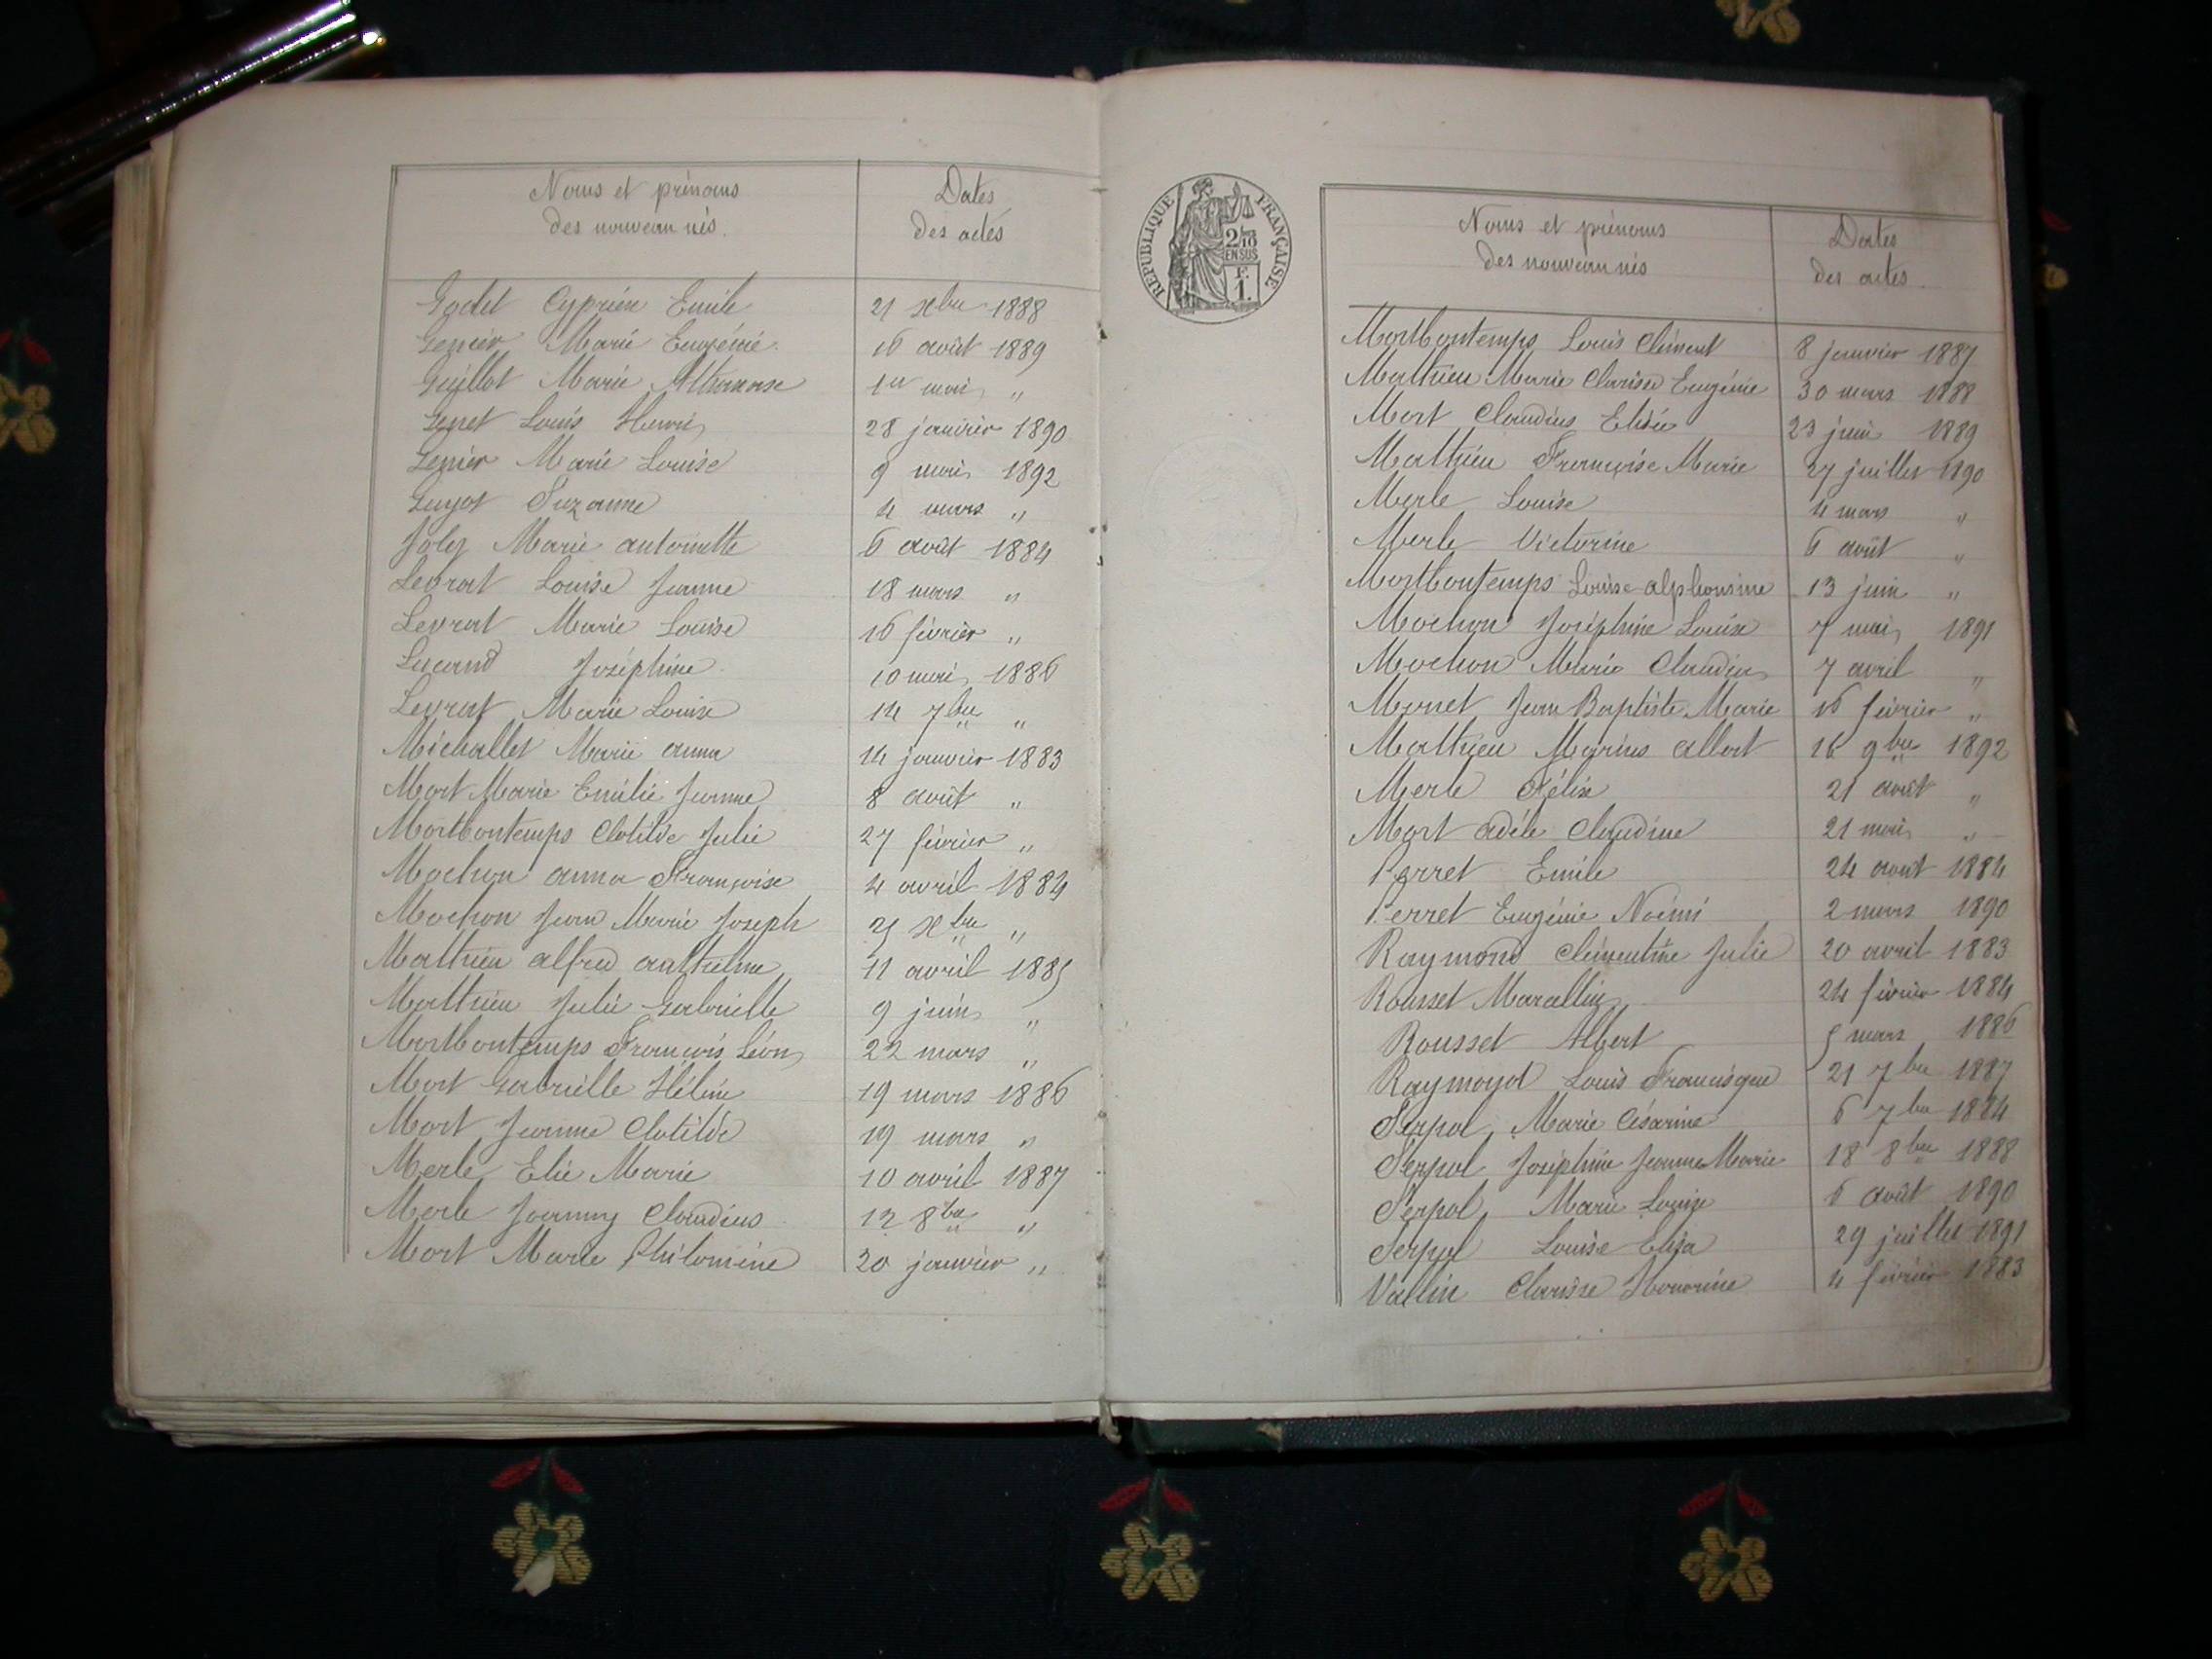 Noms et prénoms
des nouveau nés.
Dates
des actes
Godet Cyprien Emile 21 xbre 1888
Genier Marie Eugénie. 16 août 1889
Guillot Marie Athanase 1er mai "
Genet Louis Henri 28 janvier 1890
Genier Marie Louise 9 mai 1892
Guyot Suzanne 4 mars "
Joly Marie antoinette 6 août 1884
Levrat Louise Jeanne 18 mars "
Levrat Marie Louise 16 février "
Lucand Joséphine 10 mai 1886
Levrat Marie Louise 14 7bre "
Michallet Marie anna 14 janvier 1883
Mort Marie Emilie Jeanne 8 août "
Mortbontemps Clotilde Julie 27 février "
Mochon anna Françoise 4 avril 1884
Mochon Jean Marie Joseph 25 xbre "
Matthieu alfred anthelme 11 avril 1885
Matthieu Julie Gabrielle 9 juin "
Mortbontemps François Léon 22 mars "
Mort Gabrielle Hélène 19 mars 1886
Mort Jeanne Clotilde 19 mars "
Merle Elie Marie 10 avril 1887
Merle Joanny Claudius 12 8bre "
Mort Marie Philomène 20 janvier "
RÉPUBLIQUE FRANÇAISE
2/10
EN SUS
F.
1.
Noms et prénoms
des nouveau nés
Dates
des actes.
Mortbontemps Louis Clément 8 janvier 1887
Matthieu Marie Clarisse Eugénie 30 mars 1888
Mort Claudius Elisée 23 juin 1889
Matthieu Françoise Marie 27 juillet 1890
Merle Louise 4 mars "
Merle Victorine 6 août "
Mortbontemps Louise alphonsine 13 juin "
Mochon Joséphine Louise 7 mai 1891
Mochon Marie Claudia 7 avril "
Monet Jean Baptiste Marie 16 février "
Matthieu Marius albert 16 9bre 1892
Merle Félix 21 août "
Mort adèle Claudine 21 mai "
Perret Emile 24 août 1884
Perret Eugénie Noémi 2 mars 1890
Raymond Clémentine Julie 20 avril 1883
Rousset Marcellin 24 février 1884
Rousset Albert 5 mars 1886
Raymond Louis Francisque 21 7bre 1887
Serpol Marie Césarine 6 7bre 1884
Serpol Joséphine Jeanne Marie 18 8bre 1888
Serpol Marie Louise 6 août 1890
Serpol Louise Elisa 29 juillet 1891
Vallin Clarisse Honorine 4 février 1883